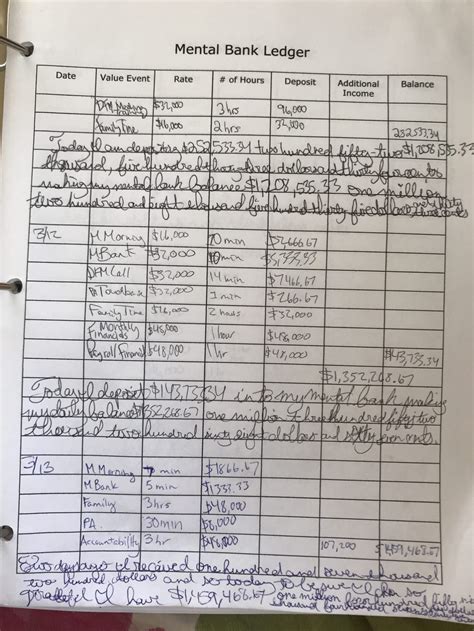 Mental Bank Ledger
Date Value Event Rate # of Hours Deposit Additional Income Balance
$32,000 3 hrs 96,000
Family Time $16,000 2 hrs 32,000
252533.34
Today I am depositing $252,533.34 two hundred fifty-two $1,208,535.33
thousand, five hundred thirty three dollars and thirty four cents
making my mental bank balance $1,208,535.33 one million
two hundred and eight thousand five hundred thirty five dollars and thirty three cents
3/12 M Morning $16,000 10 min $2666.67
M Bank $32,000 10 min $5,333.33
Call $32,000 14 min $7466.67
$266.67
Family Time $16,000 2 hours $32,000
Monthly Financials $48,000 1 hour $48,000
Payroll/Financials $48,000 1 hr $48,000 $143,733.34
$1,352,268.67
Today I deposit into my mental bank making
my daily balance one million three hundred fifty two
thousand two hundred sixty eight dollars and sixty seven cents.
3/13 M Morning 7 min $1866.67
M Bank 5 min $1333.33
Family 3 hrs $48,000
PA 30 min $8,000
Accountability 3 hr $48,000 107,200 $1,459,468.67
Two days ago I received one hundred and seven thousand
two hundred dollars and so today
grateful I have $1,459,466.67 one million four hundred fifty nine
thousand four hundred